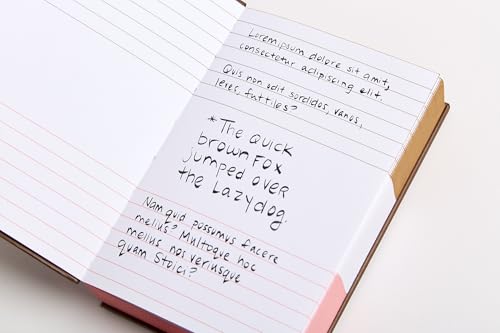 Loremipsum dolore sit amit,
consectetur adipiscing elit.
Quis non odit sordidos, vanos,
leves, futtiles?
*The quick
brown Fox
jumped over
the Lazydog.
Nam quid possumus facere
melius? Multoque hoc
melius nos veriusque
quam Stoici?